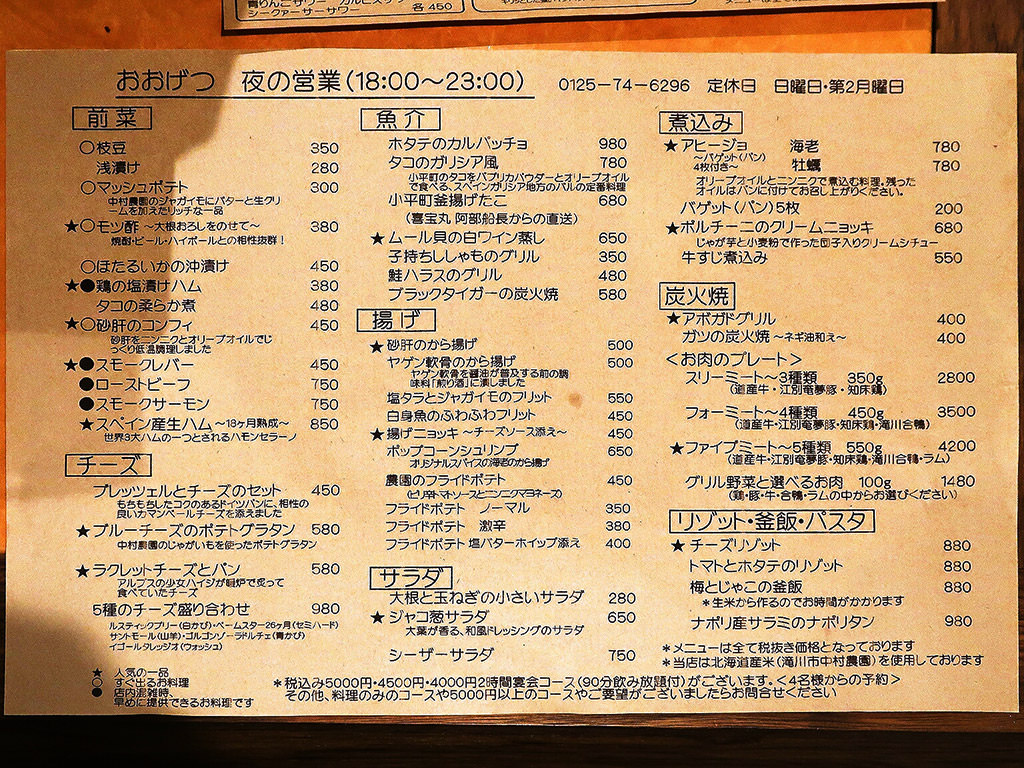 シークァーサーサワー 各450
おおげつ 夜の営業(18:00〜23:00) 0125-74-6296 定休日 日曜日・第2月曜日
前菜
○枝豆 350
浅漬け 280
○マッシュポテト 300
中村農園のジャガイモにバターと生クリ
ームを加えたリッチな一品
★○モツ酢 〜大根おろしをのせて〜 380
焼酎・ビール・ハイボールとの相性抜群！
○ほたるいかの沖漬け 450
★●鶏の塩漬けハム 380
タコの柔らか煮 480
★○砂肝のコンフィ 450
砂肝をニンニクとオリーブオイルでじ
っくり低温調理しました
★●スモークレバー 450
●ローストビーフ 750
●スモークサーモン 750
★スペイン産生ハム 〜18ヶ月熟成〜 850
世界3大ハムの一つとされるハモンセラーノ
チーズ
プレッツェルとチーズのセット 450
もちもちしたコクのあるドイツパンに、相性の
良いカマンベールチーズを添えました
★ブルーチーズのポテトグラタン 580
中村農園のじゃがいもを使ったポテトグラタン
★ラクレットチーズとパン 580
アルプスの少女ハイジが暖炉で炙って
食べていたチーズ
5種のチーズ盛り合わせ 980
ルスティックブリー(白かび)・ベームスター26ヶ月(セミハード)
サントモール(山羊)・ゴルゴンゾーラドルチェ(青かび)
イゴールタレッジオ(ウォッシュ)
★ 人気の一品
○ すぐ出るお料理
● 店内混雑時、
早めに提供できるお料理です
魚介
ホタテのカルパッチョ 980
タコのガリシア風 780
小平町のタコをパプリカパウダーとオリーブオイル
で食べる、スペインガリシア地方のバルの定番料理
小平町釜揚げたこ 680
(喜宝丸 阿部船長からの直送)
★ムール貝の白ワイン蒸し 650
子持ちししゃものグリル 350
鮭ハラスのグリル 480
ブラックタイガーの炭火焼 580
揚げ
★砂肝のから揚げ 500
ヤゲン軟骨のから揚げ 500
ヤゲン軟骨を醤油が普及する前の調
味料「煎り酒」に漬しました
塩タラとジャガイモのフリット 550
白身魚のふわふわフリット 450
★揚げニョッキ 〜チーズソース添え〜 450
ポップコーンシュリンプ 650
オリジナルスパイスの海老のから揚げ
農園のフライドポテト 450
(ピリ辛トマトソースとニンニクマヨネーズ)
フライドポテト ノーマル 350
フライドポテト 激辛 380
フライドポテト 塩バターホイップ添え 400
サラダ
大根と玉ねぎの小さいサラダ 280
★ジャコ葱サラダ 650
大葉が香る、和風ドレッシングのサラダ
シーザーサラダ 750
煮込み
★アヒージョ 海老 780
〜バゲット(パン)
4枚付き〜 牡蠣 780
オリーブオイルとニンニクで煮込む料理。残った
オイルはパンに付けてお召し上がりください。
バゲット(パン)5枚 200
★ポルチーニのクリームニョッキ 680
じゃが芋と小麦粉で作った団子入りクリームシチュー
牛すじ煮込み 550
炭火焼
★アボガドグリル 400
ガツの炭火焼 〜ネギ油和え〜 400
＜お肉のプレート＞
スリーミート〜3種類 350g 2800
(道産牛・江別竜夢豚・知床鶏)
フォーミート〜4種類 450g 3500
(道産牛・江別竜夢豚・知床鶏・滝川合鴨)
★ファイブミート〜5種類 550g 4200
(道産牛・江別竜夢豚・知床鶏・滝川合鴨・ラム)
グリル野菜と選べるお肉 100g 1480
(鶏・豚・牛・合鴨・ラムの中からお選びください)
リゾット・釜飯・パスタ
★チーズリゾット 880
トマトとホタテのリゾット 880
梅とじゃこの釜飯 880
＊生米から作るのでお時間がかかります
ナポリ産サラミのナポリタン 980
＊メニューは全て税抜き価格となっております
＊当店は北海道産米(滝川市中村農園)を使用しております
＊税込み5000円・4500円・4000円2時間宴会コース(90分飲み放題付)がございます。＜4名様からの予約＞
その他、料理のみのコースや5000円以上のコースやご要望がございましたらお問合せください